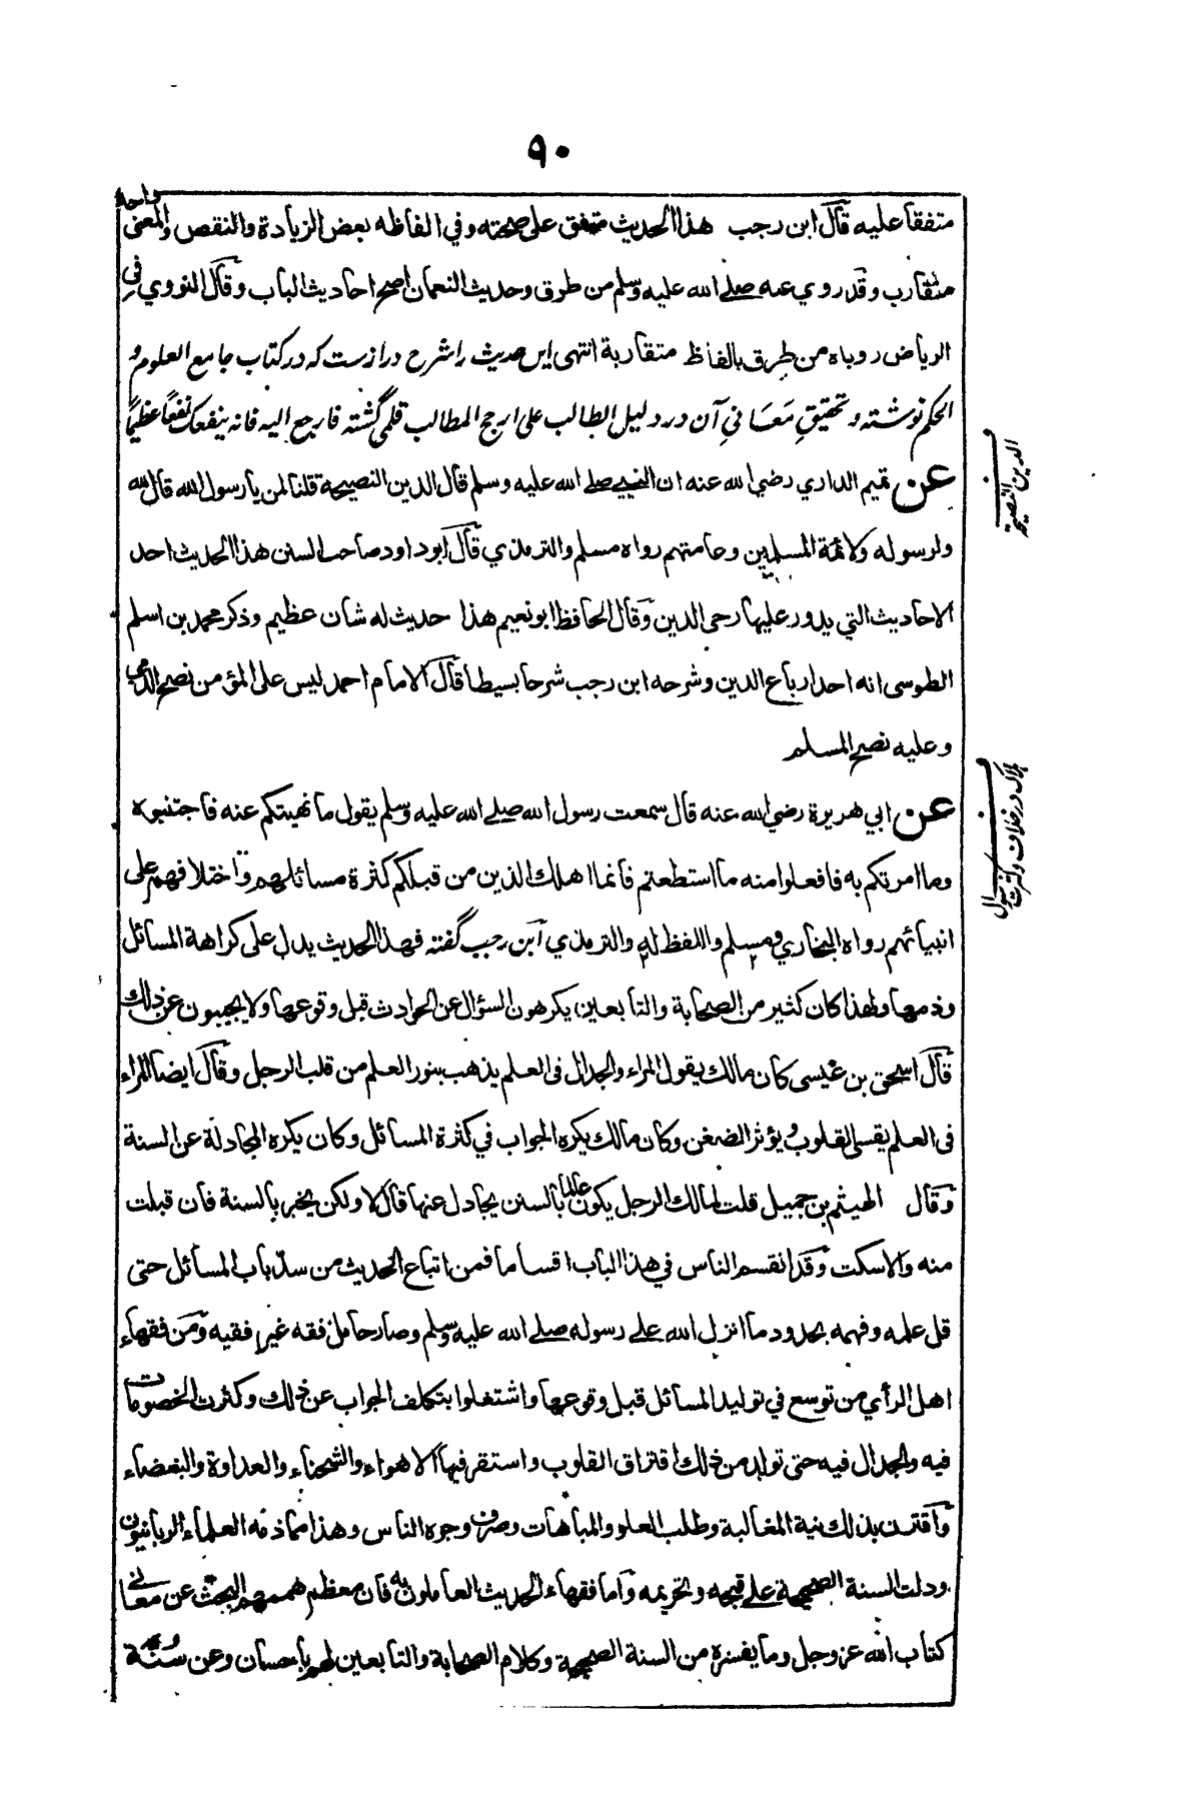 ٩٠
متفقا عليه قال ابن رجب هذا الحديث متفق على صحته وفي الفاظه بعض الزيادة والنقص والمعنى واحد
متقارب وقد روي عنه صلى الله عليه وسلم من طرق وحديث النعمان اصح احاديث الباب وقال النووي في
الرياض روياه من طرق بالفاظ متقاربة انتهى این حدیث را شرح دراز ست که در کتاب جامع العلوم و
الحكم نوشته و تحقیق معانی آن در دليل الطالب على ارجح المطالب قلمی گشته فارجع اليه فانه ينفعك نفعا عظيما
عن تميم الداري رضي الله عنه ان النبي صلى الله عليه وسلم قال الدين النصيحة قلنا لمن يا رسول الله قال لله
ولرسوله ولائمة المسلمين وعامتهم رواه مسلم والترمذي قال ابو داود صاحب السنن هذا الحديث احد
الاحاديث التي يدور عليها رحى الدين وقال الحافظ ابو نعيم هذا حديث له شان عظيم وذكر محمد بن اسلم
الطوسى انه احد ارباع الدين وشرحه ابن رجب شرحا بسيطا قال الامام احمد ليس على المؤمن نصح الذمي
وعليه نصح المسلم
عن ابي هريرة رضي الله عنه قال سمعت رسول الله صلى الله عليه وسلم يقول ما نهيتكم عنه فاجتنبوه
وما امرتكم به فافعلوا منه ما استطعتم فانما اهلك الذين من قبلكم كثرة مسائلهم واختلافهم على
انبيائهم رواه البخاري ومسلم واللفظ له والترمذي ابن رجب گفته فهذا الحديث يدل على كراهة المسائل
وذمها ولهذا كان كثير من الصحابة والتابعين يكرهون السؤال عن الحوادث قبل وقوعها ولا يجيبون عن ذلك
قال اسحق بن عيسى كان مالك يقول المراء والجدال فى العلم يذهب بنور العلم من قلب الرجل وقال ايضا المراء
فى العلم يقسى القلوب ويؤثر الضغن وكان مالك يكره الجواب في كثرة المسائل وكان يكره المجادلة عن السنة
وقال الهيثم بن جميل قلت لمالك الرجل يكون عالما بالسنن يجادل عنها قال لا ولكن يخبر بالسنة فان قبلت
منه والا سكت وقد انقسم الناس في هذا الباب اقساما فمن اتباع الحديث من سد باب المسائل حتى
قل علمه وفهمه بحدود ما انزل الله على رسوله صلى الله عليه وسلم وصار حامل فقه غير فقيه ومن فقهاء
اهل الرأي من توسع في توليد المسائل قبل وقوعها واشتغلوا بتكلف الجواب عن ذلك وكثرت الخصومات
فيه والجدال فيه حتى تولد من ذلك افتراق القلوب واستقر فيها الاهواء والشحناء والعداوة والبغضاء
واقترن بذلك نية المغالبة وطلب العلو والمباهات وصرف وجوه الناس وهذا مما ذمه العلماء الربانيون
ودلت السنة الصحيحة على قبحه وتحريمه واما فقهاء الحديث العاملون به فان معظم هممهم البحث عن معاني
كتاب الله عز وجل وما يفسره من السنة الصحيحة وكلام الصحابة والتابعين لهم باحسان وعن سنة
الدين النصيحة
هلاک در خلاف و کثرت سوال